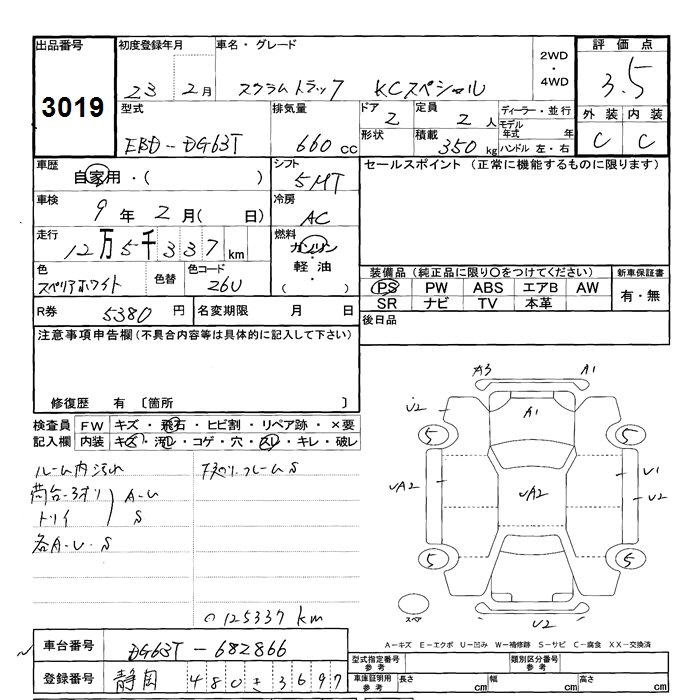 出品番号 初度登録年月 車名・グレード 2WD・4WD 評価点
3019
23 2月 スクラムトラック KCスペシャル 3.5
型式 排気量 ドア 定員 ディーラー・並行
EBD-DG63T 660cc 2 2人 モデル年式 年
外装 内装
形状 積載 350kg ハンドル 左・右
C C
車歴 自家用・( )
シフト 5MT
セールスポイント (正常に機能するものに限ります)
車検 9年2月( 日)
冷房 AC
走行 12万5千337km
燃料 ガソリン 軽油 ( ・ )
色 スペリアホワイト 色替 色コード 26U
装備品 (純正品に限り○をつけてください) 新車保証書
PS PW ABS エアB AW 有・無
SR ナビ TV 本革
R券 5380円 名変期限 月 日
後日品
注意事項申告欄 (不具合内容等は具体的に記入して下さい)
修復歴 有 〔箇所 〕
検査員 FW キズ・飛石・ヒビ割・リペア跡・×要
記入欄 内装 キズ・汚レ・コゲ・穴・スレ・キレ・破レ
A3 A1
U2 A1
5 5
UA2 UA2 U1
U2
5 5
スペア U2
ルーム内汚れ 下廻り.フレームS
荷台・3オリ A-U
トリイ S
各A-U-S
125337km
A-キズ E-エクボ U-凹み W-補修跡 S-サビ C-腐食 XX-交換済
車台番号 DG63T-682866
登録番号 静岡 480き3697
型式指定番号 参考 類別区分番号 参考
車庫証明用 参考 長さ cm 幅 cm 高さ cm